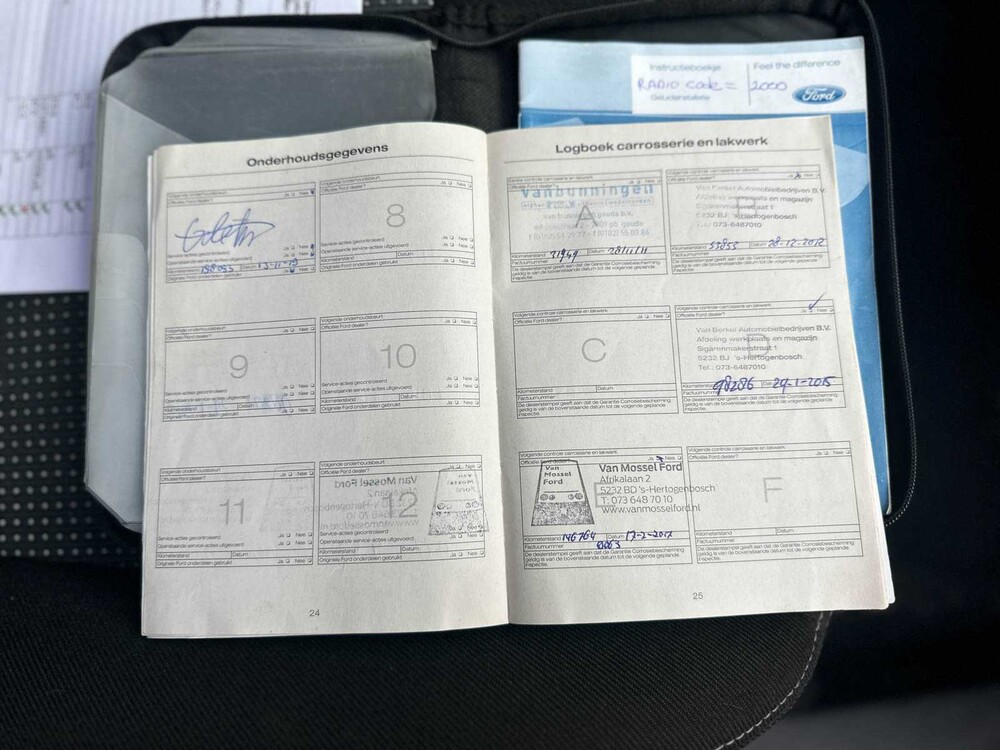 Instructieboekje
Feel the difference
RADIO Code = 2000
Geluidsinstallatie
Ford
Onderhoudsgegevens
Officiële Ford dealer?
Ja Nee
Service-acties gecontroleerd
Openstaande service-acties uitgevoerd
Kilometerstand
Datum
Originele Ford onderdelen gebruikt
Volgende onderhoudsbeurt
Officiële Ford dealer?
8
Service-acties gecontroleerd
Openstaande service-acties uitgevoerd
Kilometerstand
Datum
Originele Ford onderdelen gebruikt
Volgende onderhoudsbeurt
Officiële Ford dealer?
9
Service-acties gecontroleerd
Openstaande service-acties uitgevoerd
Kilometerstand
Datum
Originele Ford onderdelen gebruikt
Volgende onderhoudsbeurt
Officiële Ford dealer?
10
Service-acties gecontroleerd
Openstaande service-acties uitgevoerd
Kilometerstand
Datum
Originele Ford onderdelen gebruikt
Volgende onderhoudsbeurt
Officiële Ford dealer?
11
Service-acties gecontroleerd
Openstaande service-acties uitgevoerd
Kilometerstand
Datum
Originele Ford onderdelen gebruikt
Volgende onderhoudsbeurt
Officiële Ford dealer?
12
Service-acties gecontroleerd
Openstaande service-acties uitgevoerd
Kilometerstand
Datum
Originele Ford onderdelen gebruikt
24
Logboek carrosserie en lakwerk
Officiële Ford dealer?
A
Kilometerstand 21949 Datum 28/11/11
Factuurnummer
De dealerstempel geeft aan dat de Garantie Corrosiebescherming
geldig is van de bovenstaande datum tot de volgende geplande
inspectie.
Officiële Ford dealer?
Van Berkel Automobielbedrijven B.V.
Afdeling werkplaats en magazijn
Sigarenmakerstraat 1
5232 BJ 's-Hertogenbosch
Tel.: 073-6487010
Kilometerstand 53855 Datum 28-12-2012
Factuurnummer
De dealerstempel geeft aan dat de Garantie Corrosiebescherming
geldig is van de bovenstaande datum tot de volgende geplande
inspectie.
Volgende controle carrosserie en lakwerk
Officiële Ford dealer?
Ja Nee
C
Kilometerstand
Datum
Factuurnummer
De dealerstempel geeft aan dat de Garantie Corrosiebescherming
geldig is van de bovenstaande datum tot de volgende geplande
inspectie.
Volgende controle carrosserie en lakwerk
Officiële Ford dealer?
Van Berkel Automobielbedrijven B.V.
Afdeling werkplaats en magazijn
D
Sigarenmakerstraat 1
5232 BJ 's-Hertogenbosch
Tel.: 073-6487010
Kilometerstand 98286 Datum 29-1-2015
Factuurnummer
De dealerstempel geeft aan dat de Garantie Corrosiebescherming
geldig is van de bovenstaande datum tot de volgende geplande
inspectie.
Volgende controle carrosserie en lakwerk
Officiële Ford dealer?
Ja Nee
Van
Mossel
Ford
Van Mossel Ford
Afrikalaan 2
5232 BD 's-Hertogenbosch
T: 073 648 70 10
www.vanmosselford.nl
Kilometerstand 146764 Datum 17-2-2017
Factuurnummer
De dealerstempel geeft aan dat de Garantie Corrosiebescherming
geldig is van de bovenstaande datum tot de volgende geplande
inspectie.
Volgende controle carrosserie en lakwerk
Officiële Ford dealer?
Ja Nee
F
Kilometerstand
Datum
Factuurnummer
De dealerstempel geeft aan dat de Garantie Corrosiebescherming
geldig is van de bovenstaande datum tot de volgende geplande
inspectie.
25